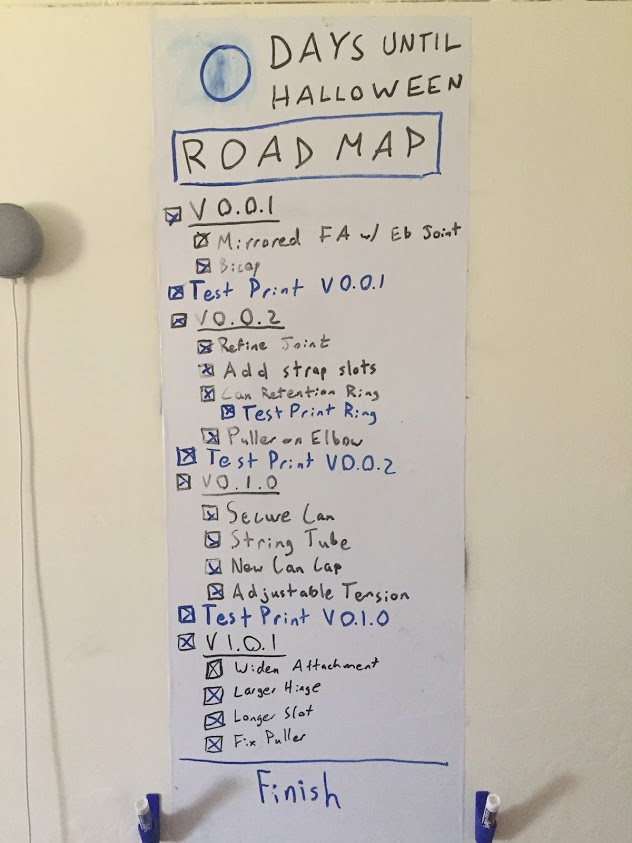 0 DAYS UNTIL
HALLOWEEN
ROAD MAP
V 0.0.1
Mirrored FA w/ Eb Joint
Bicep
Test Print V 0.0.1
V 0.0.2
Refine Joint
Add strap slots
Can Retention Ring
Test Print Ring
Puller on Elbow
Test Print V0.0.2
V0.1.0
Secure Can
String Tube
New Can Cap
Adjustable Tension
Test Print V0.1.0
V 1.0.1
Widen Attachment
Larger Hinge
Longer Slot
Fix Puller
Finish